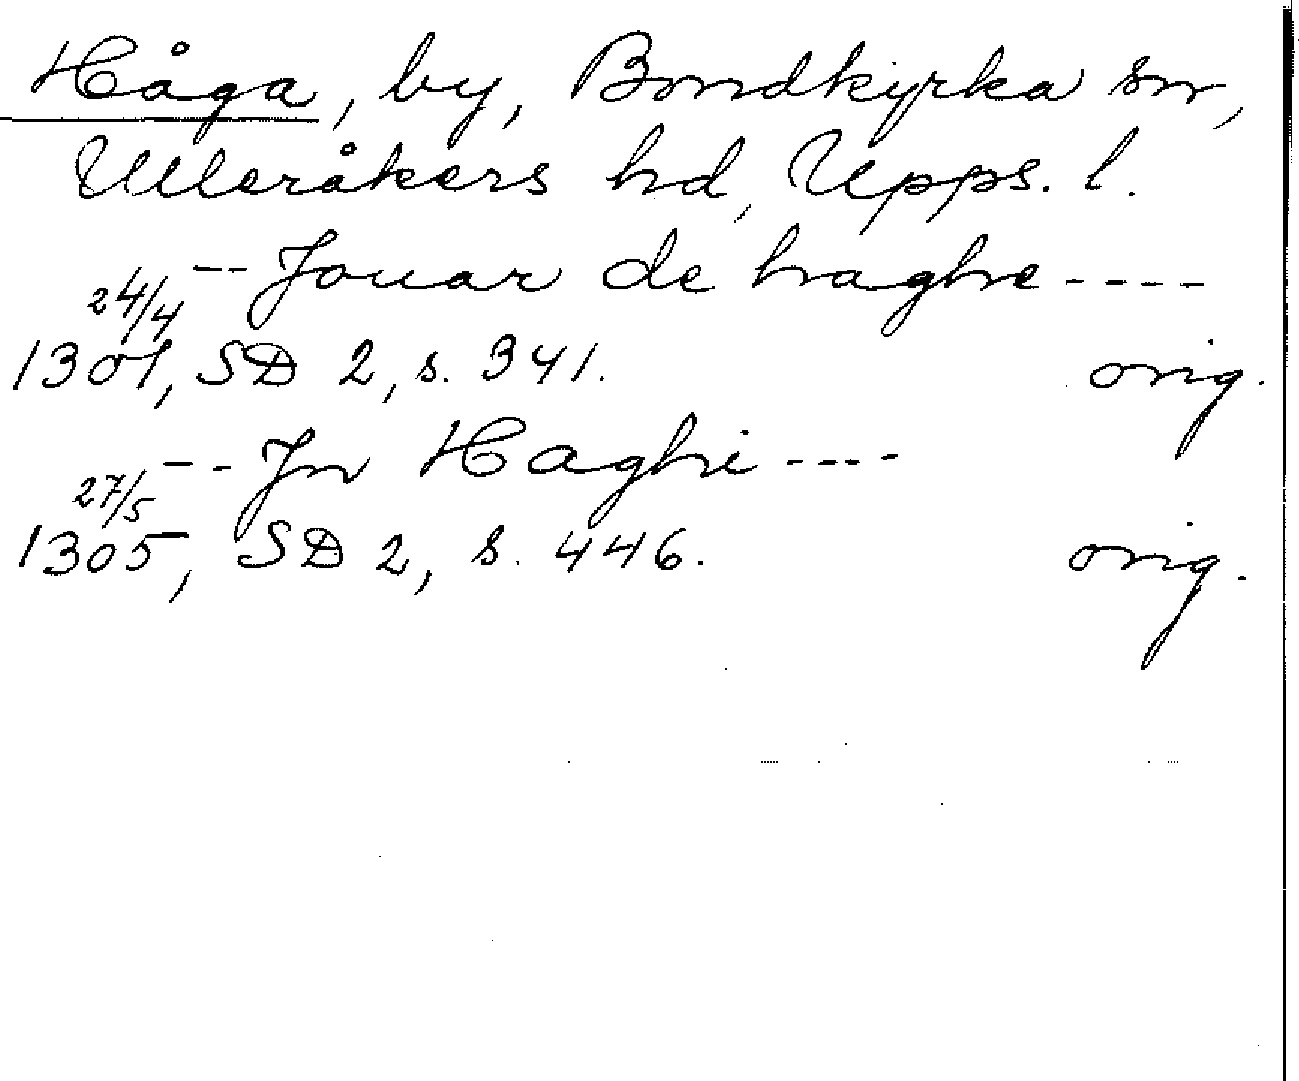 Håga, by, Bondkyrka sn,
Ulleråkers hd, Upps. l.
-- Jouar de haghe ----
24/4
1301, SD 2, s. 341. orig.
-- Jn Haghi ----
27/5
1305, SD 2, s. 446. orig.